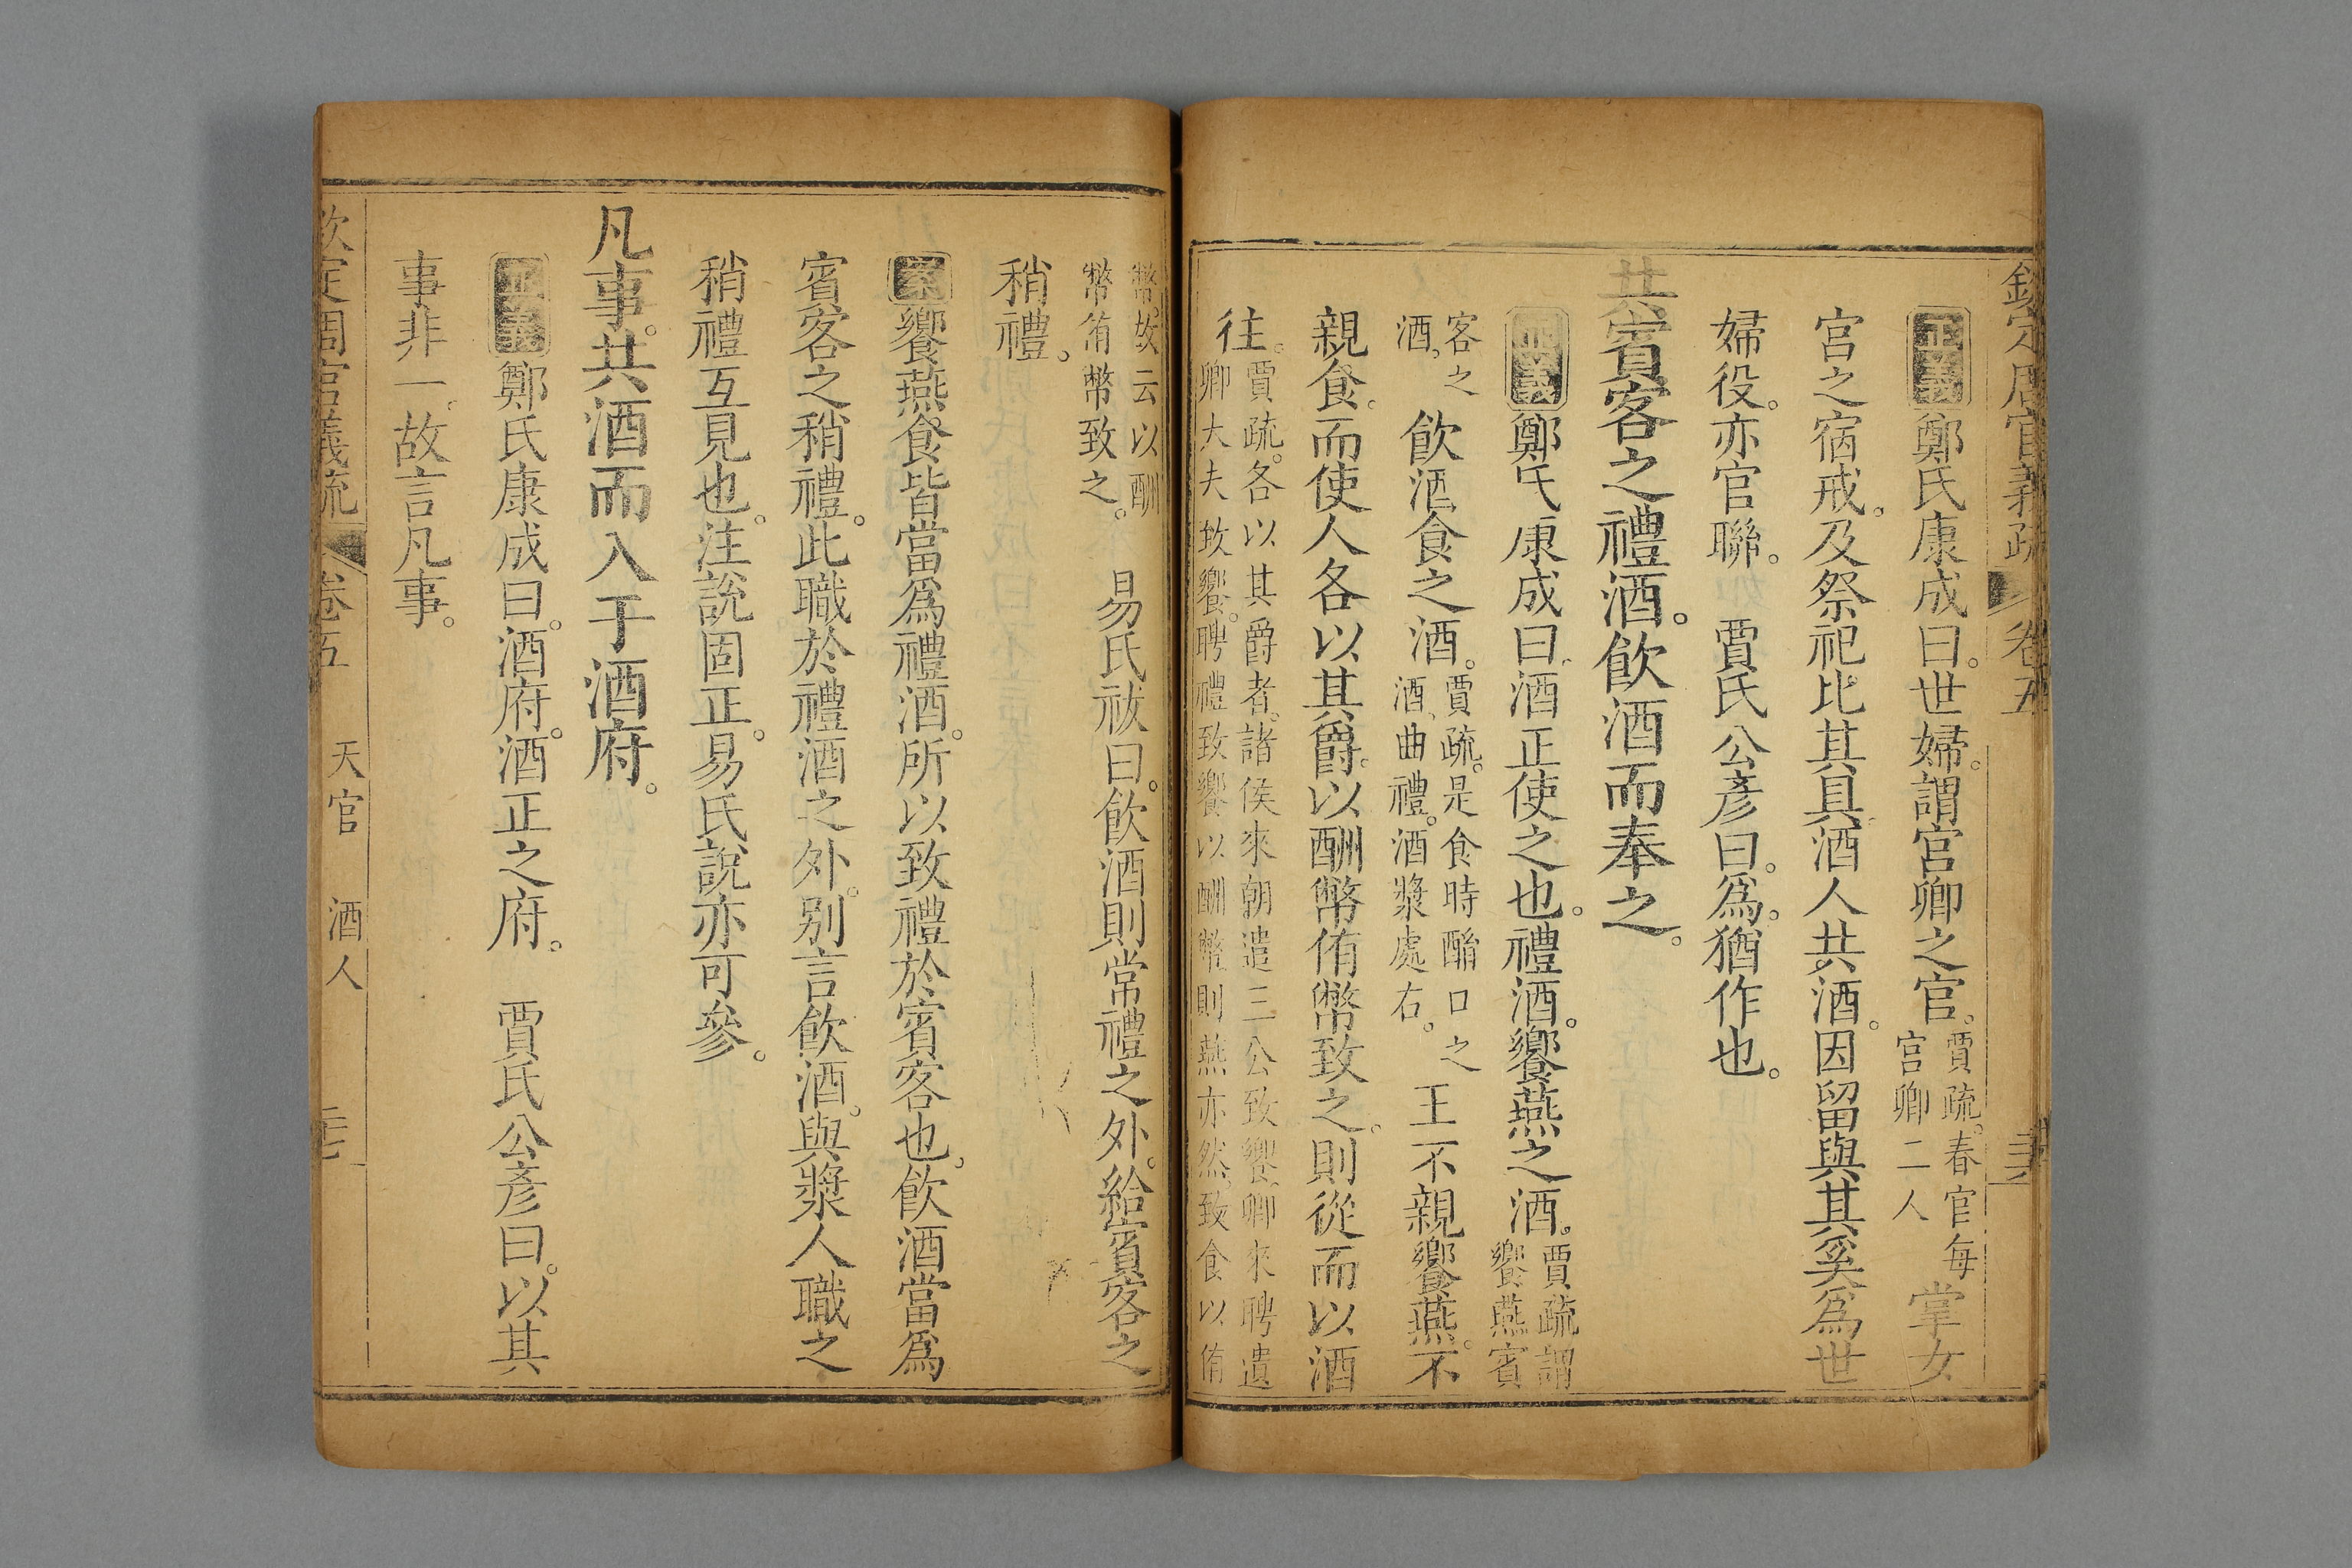 欽定周官義疏 卷五 三六
正義鄭氏康成曰。世婦。謂宮卿之官。賈疏。春官每宮卿二人掌女
宮之宿戒。及祭祀比其具。酒人共酒。因留與其奚為世
婦役。亦官聯。 賈氏公彥曰。為。猶作也。
共賓客之禮酒。飲酒而奉之。
正義鄭氏康成曰。酒正使之也。禮酒。饗燕之酒。賈疏謂饗燕賓
客之酒。飲酒食之酒。賈疏。是食時酳口之酒。曲禮。酒漿處右。王不親饗燕。不
親食。而使人各以其爵。以酬幣侑幣致之。則從而以酒
往。賈疏。各以其爵者。諸侯來朝遣三公致饗。卿來聘遣卿大夫致饗。聘禮致饗以酬幣。則燕亦然。致食以侑
幣。故云以酬幣侑幣致之。 易氏祓曰。飲酒則常禮之外。給賓客之
稍禮。
案饗燕食皆當為禮酒。所以致禮於賓客也。飲酒當為
賓客之稍禮。此職於禮酒之外。別言飲酒。與漿人職之
稍禮互見也。注說固正。易氏說亦可參。
凡事。共酒而入于酒府。
正義鄭氏康成曰。酒府。酒正之府。 賈氏公彥曰。以其
事非一。故言凡事。
欽定周官義疏 卷五 天官 酒人 三七